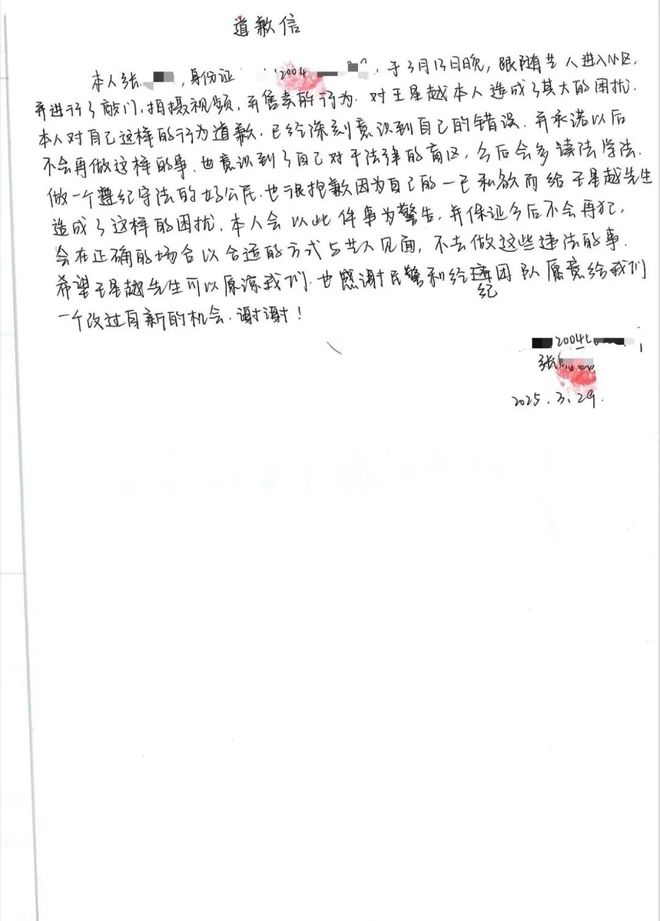 道歉信
本人张，身份证 2004，于3月13日晚，跟随艺人进入小区，
并进行了敲门，拍摄视频，并售卖的行为．对王星越本人造成了莫大的困扰．
本人对自己这样的行为道歉．已经深刻意识到自己的错误．并承诺以后
不会再做这样的事．也意识到了自己对于法律的盲区，今后会多读法学法．
做一个遵纪守法的好公民．也很抱歉因为自己的一己私欲而给王星越先生
造成了这样的困扰．本人会以此件事为警告，并保证今后不会再犯，
会在正确的场合以合适的方式与艺人见面，不去做这些违法的事．
希望王星越先生可以原谅我们．也感谢民警和经纪团队愿意给我们
一个改过自新的机会．谢谢！
2004
张
2025.3.29.